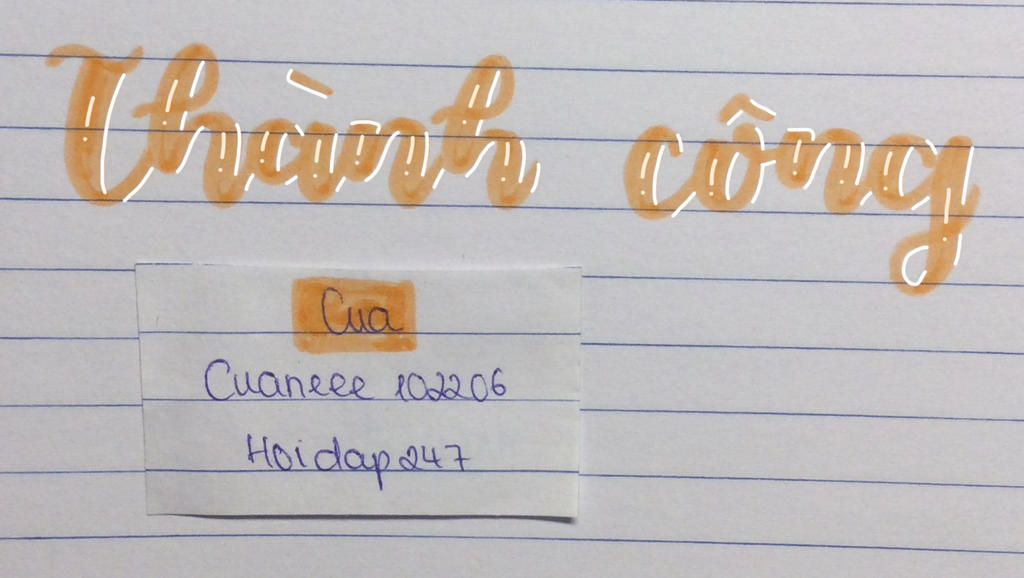 Thành công
Cua
Cuaneee 102206
Hoidap247